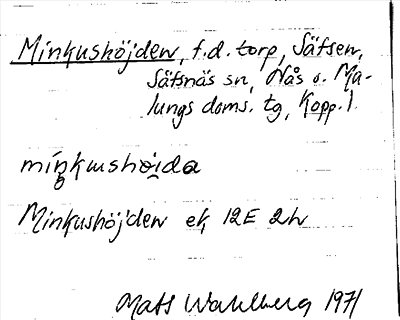 Minkushöjden, f.d. torp, Säfsen,
Säfsnäs sn, Nås o. Ma-
lungs doms. tg, Kopp. l.
miŋkushöida
Minkushöjden ek 12E 2h
Mats Wahlberg 1971